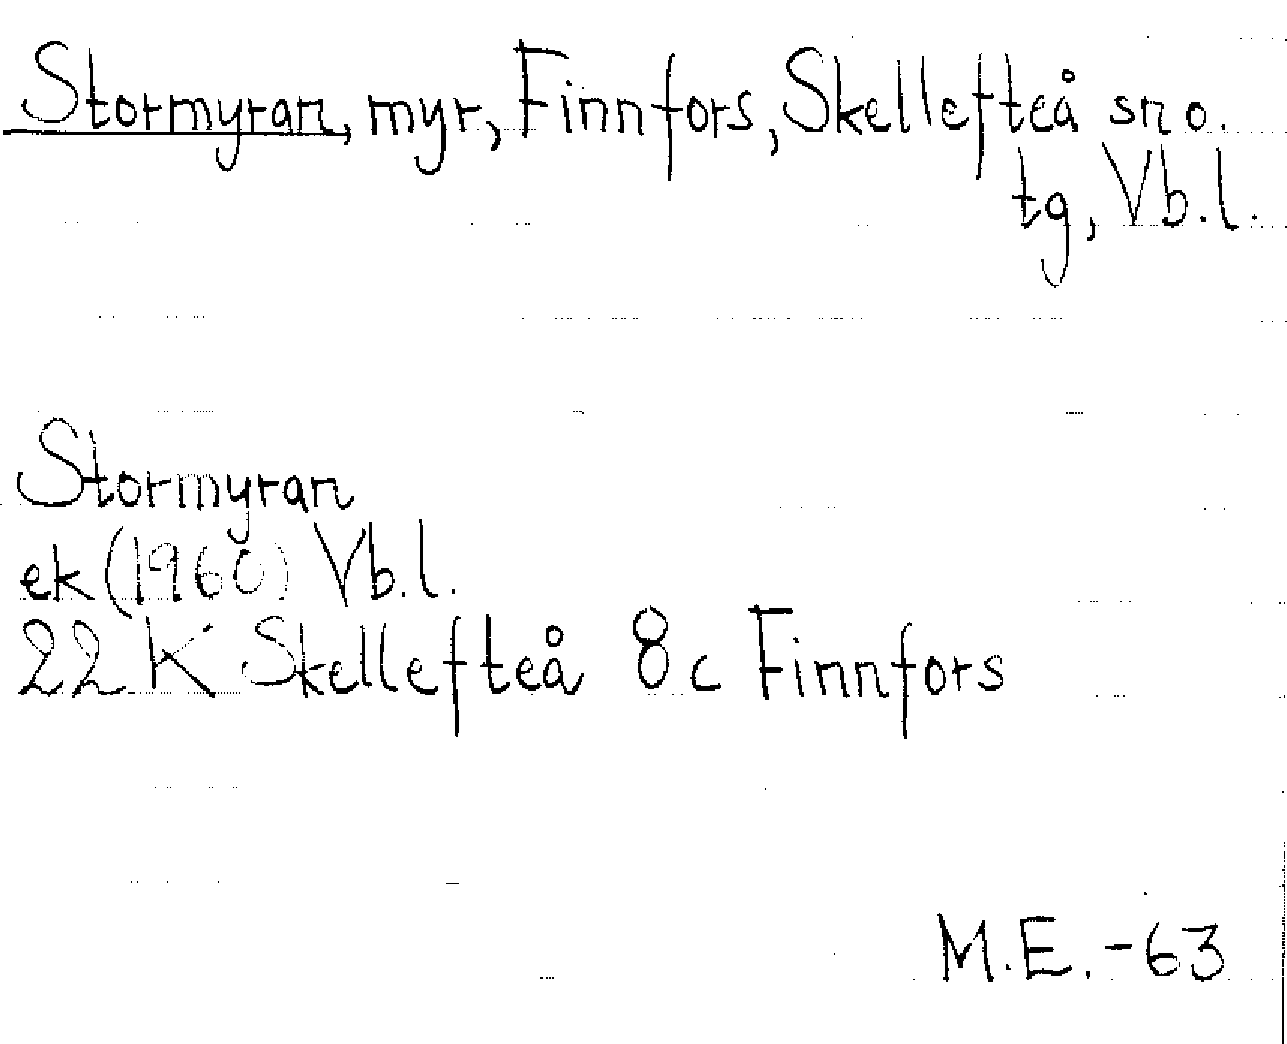 Stormyran, myr, Finnfors, Skellefteå sn o.
tg, Vb.l.
Stormyran
ek (1960) Vb.l.
22 K Skellefteå 8 c Finnfors
M.E. -63